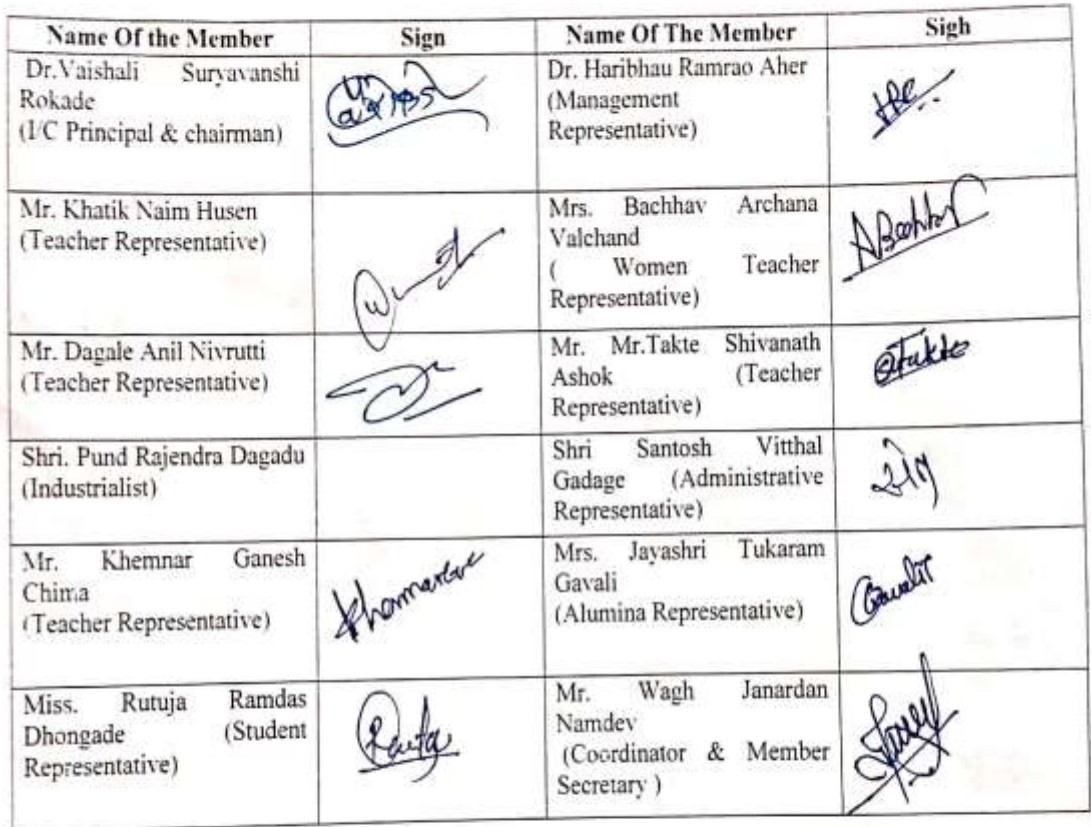 Name Of the Member Sign Name Of The Member Sigh
Dr.Vaishali Suryavanshi
Rokade
(I/C Principal & chairman)
Dr. Haribhau Ramrao Aher
(Management
Representative)
Mr. Khatik Naim Husen
(Teacher Representative)
Mrs. Bachhav Archana
Valchand
( Women Teacher
Representative)
ABachhav
Mr. Dagale Anil Nivrutti
(Teacher Representative)
Mr. Mr.Takte Shivanath
Ashok (Teacher
Representative)
Takte
Shri. Pund Rajendra Dagadu
(Industrialist)
Shri Santosh Vitthal
Gadage (Administrative
Representative)
Mr. Khemnar Ganesh
Chima
(Teacher Representative)
Mrs. Jayashri Tukaram
Gavali
(Alumina Representative)
Miss. Rutuja Ramdas
Dhongade (Student
Representative)
Mr. Wagh Janardan
Namdev
(Coordinator & Member
Secretary )